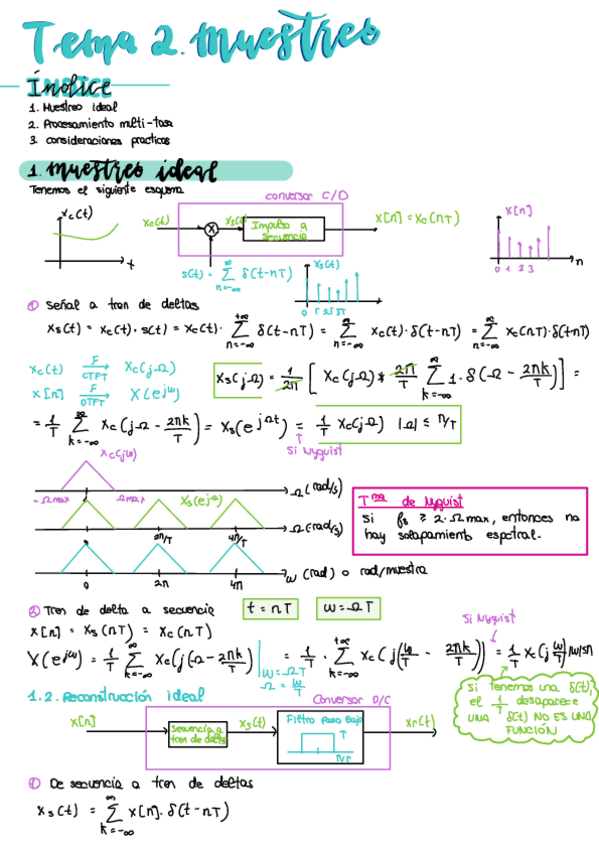 Tema 2. Muestreo
Índice
1. Muestreo ideal
2. Procesamiento multi-tasa
3. consideraciones practicas
1. muestreo ideal
Tenemos el siguiente esquema
conversor C/D
xc(t)
t
xc(t)
x
xs(t)
Impulso a
secuencia
x[n] = xc(nT)
x[n]
0 1 2 3
n
s(t) = ∑_{n=-∞}^{∞} δ(t-nT)
xs(t)
0 T 2T 3T
① Señal a tren de deltas
xs(t) = xc(t)·s(t) = xc(t)· ∑_{n=-∞}^{+∞} δ(t-nT) = ∑_{n=-∞}^{∞} xc(t)·δ(t-nT) = ∑_{n=-∞}^{∞} xc(nT)·δ(t-nT)
xc(t) F→ CTFT Xc(jΩ)
x[n] F→ DTFT X(e^{jω})
Xs(jΩ) = 1/2π [ Xc(jΩ) * 2π/T ∑_{k=-∞}^{∞} 1·δ(Ω - 2πk/T) ] =
= 1/T ∑_{k=-∞}^{∞} Xc(jΩ - 2πk/T) = Xs(e^{jΩt}) = 1/T Xc(jΩ) |Ω| ≤ π/T
Si Nyquist
Xc(jω)
-Ωmax Ωmax
Ω (rad/s)
Xs(e^{jΩ})
2π/T 4π/T
Ω (rad/s)
0 2π 4π
ω (rad) o rad/muestra
Tma de Nyquist
Si fs ≥ 2·Ωmax, entonces no
hay solapamiento espectral.
② Tren de delta a secuencia
t = nT
ω = ΩT
x[n] = xs(nT) = xc(nT)
Si Nyquist
X(e^{jω}) = 1/T ∑_{k=-∞}^{∞} Xc(j(Ω - 2πk/T)) | ω=ΩT Ω = ω/T = 1/T · ∑_{k=-∞}^{+∞} Xc(j(ω/T - 2πk/T)) = 1/T Xc(j ω/T) |ω|≤π
Si tenemos una δ(t),
el 1/T desaparece
UNA δ(t) NO ES UNA
FUNCIÓN
1.2. Reconstrucción ideal
Conversor D/C
x[n]
Secuencia a
tren de deltas
xs(t)
Filtro Paso Bajo
π/T
xr(t)
① De secuencia a tren de deltas
xs(t) = ∑_{k=-∞}^{∞} x[n]·δ(t-nT)